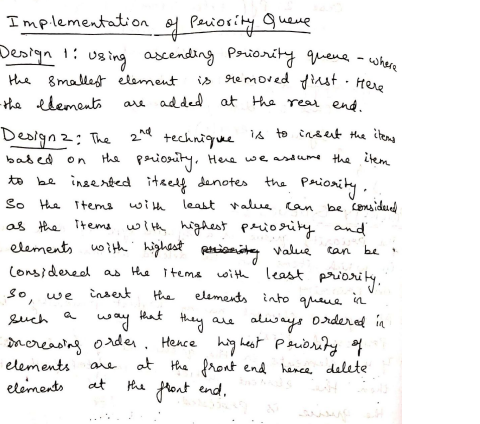 Implementation of Periority Queue
Design 1: Using ascending Priority queue - where
the smallest element is removed first. Here
the elements are added at the rear end.
Design 2: The 2nd technique is to insert the items
based on the priority. Here we assume the item
to be inserted itself denotes the Priority.
So the items with least value can be considered
as the items with highest periority and
elements with highest priority value can be
considered as the items with least priority.
So, we insert the elements into queue in
such a way that they are always ordered in
increasing order. Hence highest Periority of
elements are at the front end hence delete
elements at the front end.